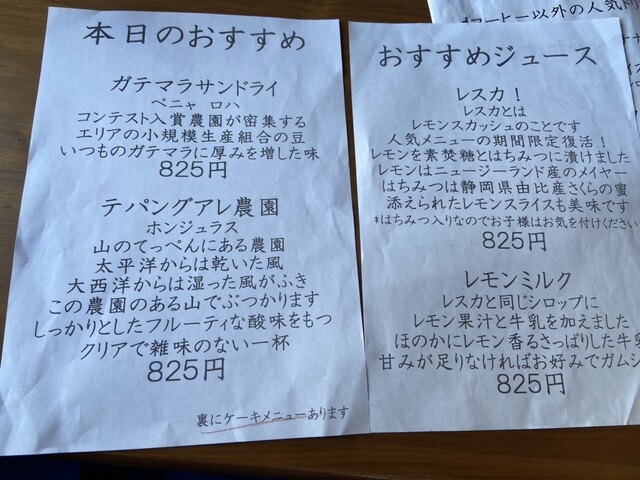 本日のおすすめ
ガテマラサンドライ
ペニャ ロハ
コンテスト入賞農園が密集する
エリアの小規模生産組合の豆
いつものガテマラに厚みを増した味
825円
テパングアレ農園
ホンジュラス
山のてっぺんにある農園
太平洋からは乾いた風
大西洋からは湿った風がふき
この農園のある山でぶつかります
しっかりとしたフルーティな酸味をもつ
クリアで雑味のない一杯
825円
裏にケーキメニューあります
コーヒー以外の人気
おすすめジュース
レスカ！
レスカとは
レモンスカッシュのことです
人気メニューの期間限定復活！
レモンを素焚糖とはちみつに漬けました
レモンはニュージーランド産のメイヤー
はちみつは静岡県由比産さくらの蜜
添えられたレモンスライスも美味です
*はちみつ入りなのでお子様はお気を付けください
825円
レモンミルク
レスカと同じシロップに
レモン果汁と牛乳を加えました
ほのかにレモン香るさっぱりした牛
甘みが足りなければお好みでガムシ
825円